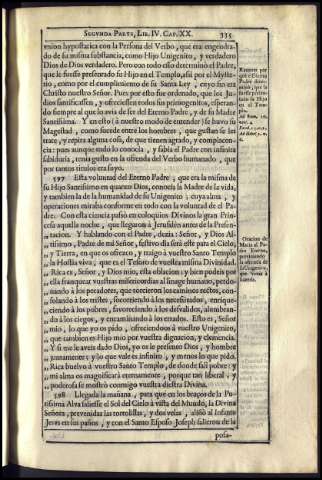 SEGUNDA PARTE, LIB. IV. CAP. XX. 335
vnion hypostatica con la Persona del Verbo, que era engendra-
do de su misma substancia, como Hijo Unigenito, y verdadero
Dios de Dios verdadero. Pero con todo esso determinò el Padre,
que le fuesse presentado su Hijo en el Templo, assi por el Myste-
rio, como por el cumplimiento de su Santa Ley, cuyo fin era
Christo nuestro Señor. Pues por esto fue ordenado, que los Ju-
dios santificassen, y ofreciessen todos sus primogenitos, esperan-
do siempre al que lo avia de ser del Eterno Padre, y de su Madre
Santissima. Y en esto (à nuestro modo de entender) se huvo su
Magestad, como sucede entre los hombres, que gustan se les
trate, y repita alguna cosa, de que tienen agrado, y complacen-
cia: pues aunque todo lo conocia, y sabia el Padre con infinita
sabiduria, tenia gusto en la ofrenda del Verbo humanado, que
por tantos titulos era suyo.
597 Esta voluntad del Eterno Padre, que era la misma de
su Hijo Santissimo en quanto Dios, conocia la Madre de la vida,
y tambien la de la humanidad de su Unigenito; cuya alma, y
operaciones mirava conformes en todo con la voluntad del Pa-
dre. Con esta ciencia passò en coloquios Divinos la gran Prin-
cesa aquella noche, que llegaron à Jerusalèn antes de la Presen-
tacion. Y hablando con el Padre, decia: Señor, y Dios Al-
,, tissimo, Padre de mi Señor, festivo dia serà este para el Cielo,
,, y Tierra, en que os ofrezco, y traigo à vuestro Santo Templo
,, la Hostia viva, que es el Tesoro de vuestra misma Divinidad.
,, Rica es, Señor, y Dios mio, esta oblacion; y bien podeis por
,, ella franquear vuestras misericordias al linage humano, perdo-
,, nando à los pecadores, que torcieron los caminos rectos, con-
,, solando à los tristes, socorriendo à los necessitados, enrique-
,, ciendo à los pobres, favoreciendo à los desvalidos, alumbran-
,, do à los ciegos, y encaminando à los errados. Esto es, Señor
,, mio, lo que yo os pido, ofreciendoos à vuestro Unigenito,
,, que tambien es Hijo mio por vuestra dignacion, y clemencia.
,, Y si me le aveis dado Dios, yo os le presento Dios, y hombre
,, juntamente; y lo que vale es infinito, y menos lo que pido.
,, Rica buelvo à vuestro Santo Templo, de donde salì pobre; y
,, mi alma os magnificarà eternamente, porque tan liberal, y
,, poderosa se mostrò conmigo vuestra diestra Divina.
598 Llegada la mañana, para que en los brazos de la Pu-
rissima Alva saliesse el Sol del Cielo à vista del Mundo, la Divina
Señora, prevenidas las tortolillas, y dos velas, aliñò al Infante
Jesvs en sus paños, y con el Esposo Joseph salieron de la
posa-
Oracion de
Maria al Pa-
dre Eterno,